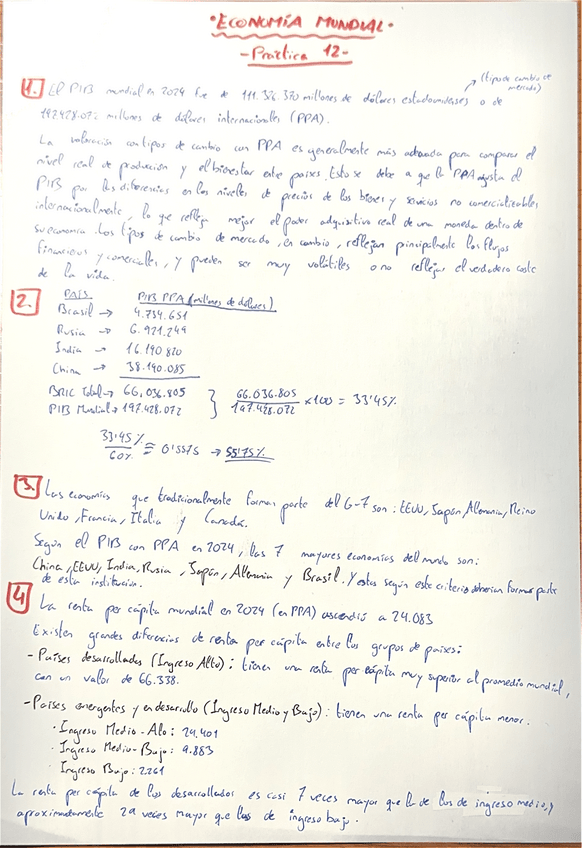 ·ECONOMÍA MUNDIAL·
-Práctica 12-
1. El PIB mundial en 2024 fue de 111.326.370 millones de dólares estadounidenses o de
(tipos de cambio de mercado)
197.428.072 millones de dólares internacionales (PPA).
La valoración con tipos de cambio con PPA es generalmente más adecuada para comparar el
nivel real de producción y el bienestar entre países. Esto se debe a que la PPA ajusta el
PIB por las diferencias en los niveles de precios de los bienes y servicios no comercializables
internacionalmente, lo que refleja mejor el poder adquisitivo real de una moneda dentro de
su economía. Los tipos de cambio de mercado, en cambio, reflejan principalmente los flujos
financieros y comerciales, y pueden ser muy volátiles o no reflejar el verdadero coste
de la vida.
2. PAÍS PIB PPA (millones de dólares)
Brasil → 4.734.651
Rusia → 6.921.249
India → 16.190.820
China → 38.190.085
BRIC Total → 66.036.805
PIB Mundial → 197.428.072
} 66.036.805 / 197.428.072 × 100 = 33'45%
33'45% / 60% ≅ 0'5575 → 55'75%
3. Las economías que tradicionalmente forman parte del G-7 son: EEUU, Japón, Alemania, Reino
Unido, Francia, Italia y Canadá.
Según el PIB con PPA en 2024, las 7 mayores economías del mundo son:
China, EEUU, India, Rusia, Japón, Alemania y Brasil. Y estas según este criterio deberían formar parte
de esta institución.
4 La renta per cápita mundial en 2024 (en PPA) ascendió a 24.083
Existen grandes diferencias de renta per cápita entre los grupos de países:
- Países desarrollados (Ingreso Alto): tienen una renta per cápita muy superior al promedio mundial,
con un valor de 66.338.
- Países emergentes y en desarrollo (Ingreso Medio y Bajo): tienen una renta per cápita menor.
· Ingreso Medio-Alo: 24.401
· Ingreso Medio-Bajo: 9.883
Ingreso Bajo: 2.261
La renta per cápita de los desarrollados es casi 7 veces mayor que la de los de ingreso medio, y
aproximadamente 29 veces mayor que las de ingreso bajo.